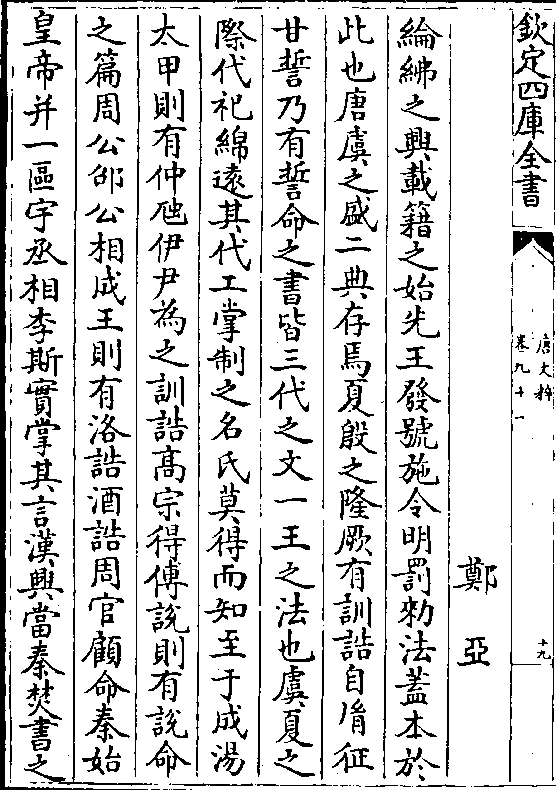 欽定四庫全書
唐文粹
卷九十一
十九
鄭亞
綸綍之興載籍之始先王發號施令明罰勑法蓋本於
此也唐虞之盛二典存焉夏殷之隆厥有訓誥自胤征
甘誓乃有誓命之書皆三代之文一王之法也虞夏之
際代祀綿遠其代工掌制之名氏莫得而知至于成湯
太甲則有仲虺伊尹為之訓誥髙宗得傅說則有說命
之篇周公邵公相成王則有洛誥酒誥周官顧命秦始
皇帝并一區宇丞相李斯實掌其言漢興當秦焚書之